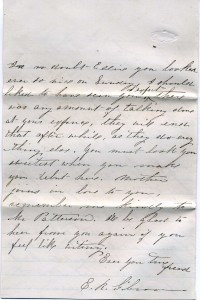 no doubt Eddie you looked
ever so nice on Sunday, I should
liked to have seen you
was any amount of talking done
at your expense, they will cease
that after while, as they do any
thing else, You must look your
when you make
your debut here. Mother
joins in love to you,
remember me kindly to
Mr Patterson. Will be glad to
hear from you again if you
feel like writing.
Ever your true
friend
E. R.